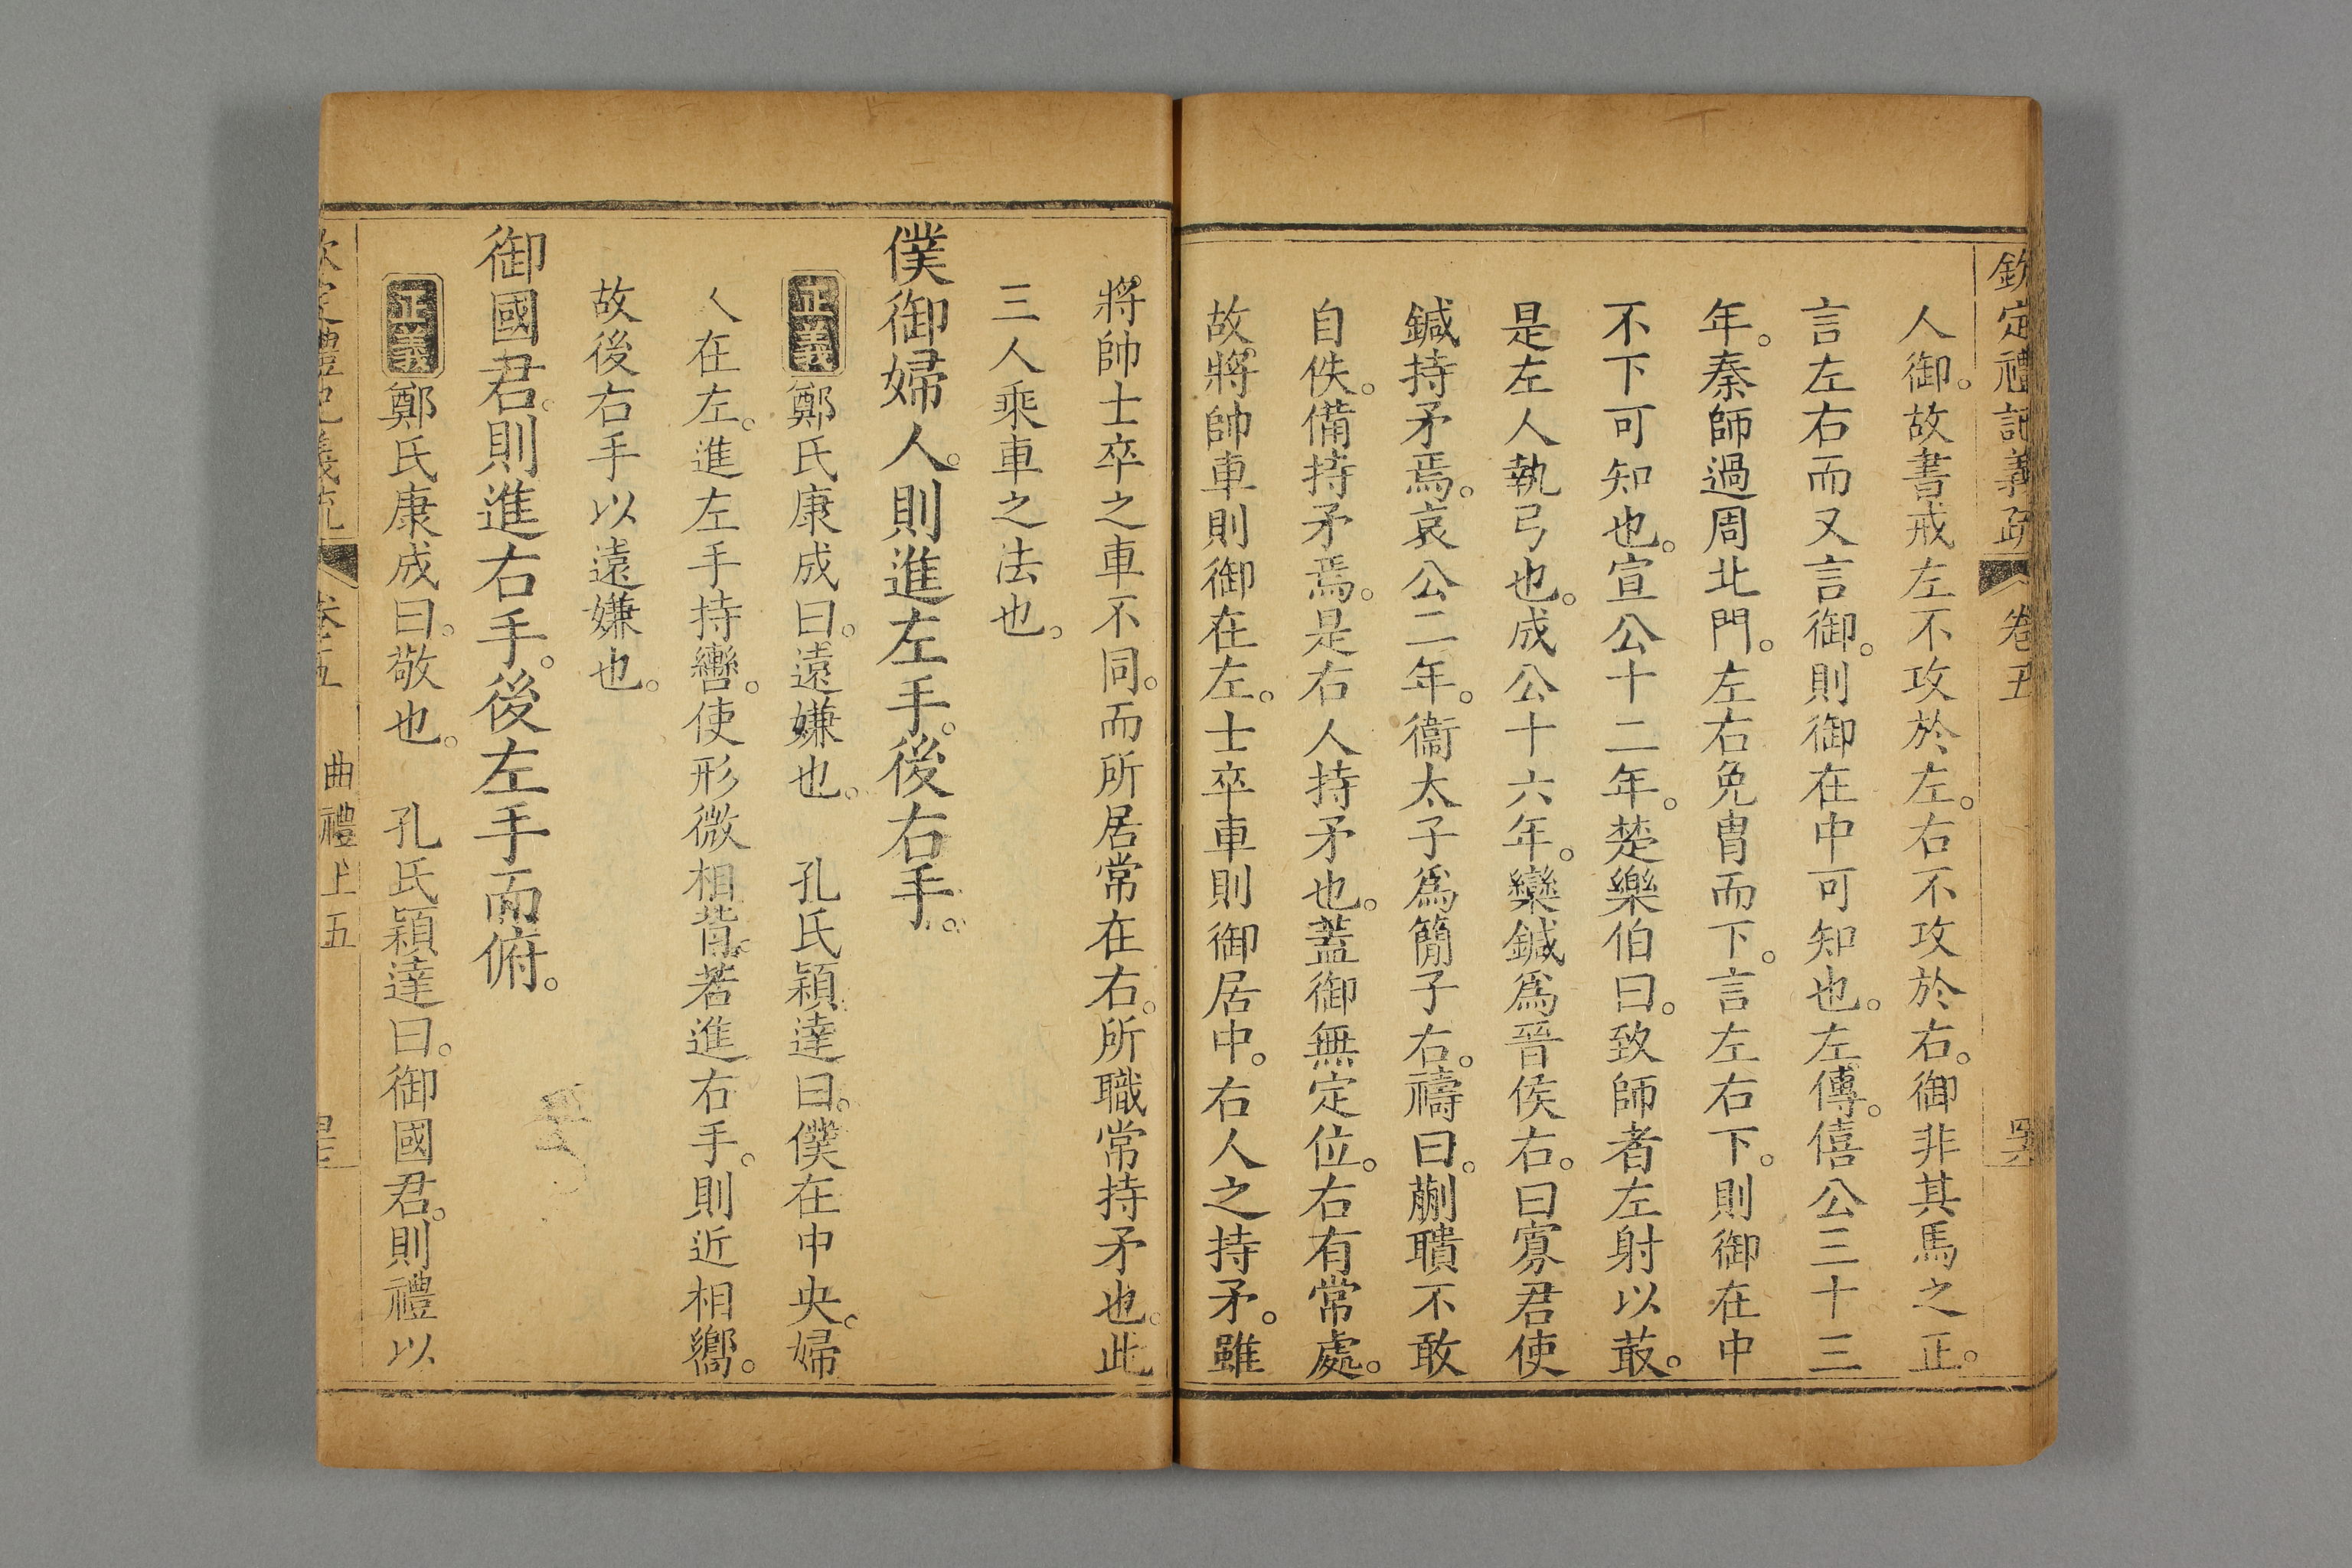 欽定禮記義疏 卷五
人御。故書戒左不攻於左。右不攻於右。御非其馬之正。
言左右而又言御。則御在中可知也。左傳。僖公三十三
年。秦師過周北門。左右免胄而下。言左右下。則御在中
不下可知也。宣公十二年。楚樂伯曰。致師者左射以菆。
是左人執弓也。成公十六年。欒鍼爲晉侯右。曰寡君使
鍼持矛焉。哀公二年。衞太子爲簡子右。禱曰。蒯聵不敢
自佚。備持矛焉。是右人持矛也。蓋御無定位。右有常處。
故將帥車則御在左。士卒車則御居中。右人之持矛。雖
將帥士卒之車不同。而所居常在右。所職常持矛也。此
三人乘車之法也。
僕御婦人。則進左手。後右手。
正義 鄭氏康成曰。遠嫌也。 孔氏穎達曰。僕在中央。婦
人在左。進左手持轡。使形微相背。若進右手。則近相嚮。
故後右手以遠嫌也。
御國君。則進右手。後左手而俯。
正義 鄭氏康成曰。敬也。 孔氏穎達曰。御國君。則禮以
欽定禮記義疏 卷五 曲禮上五